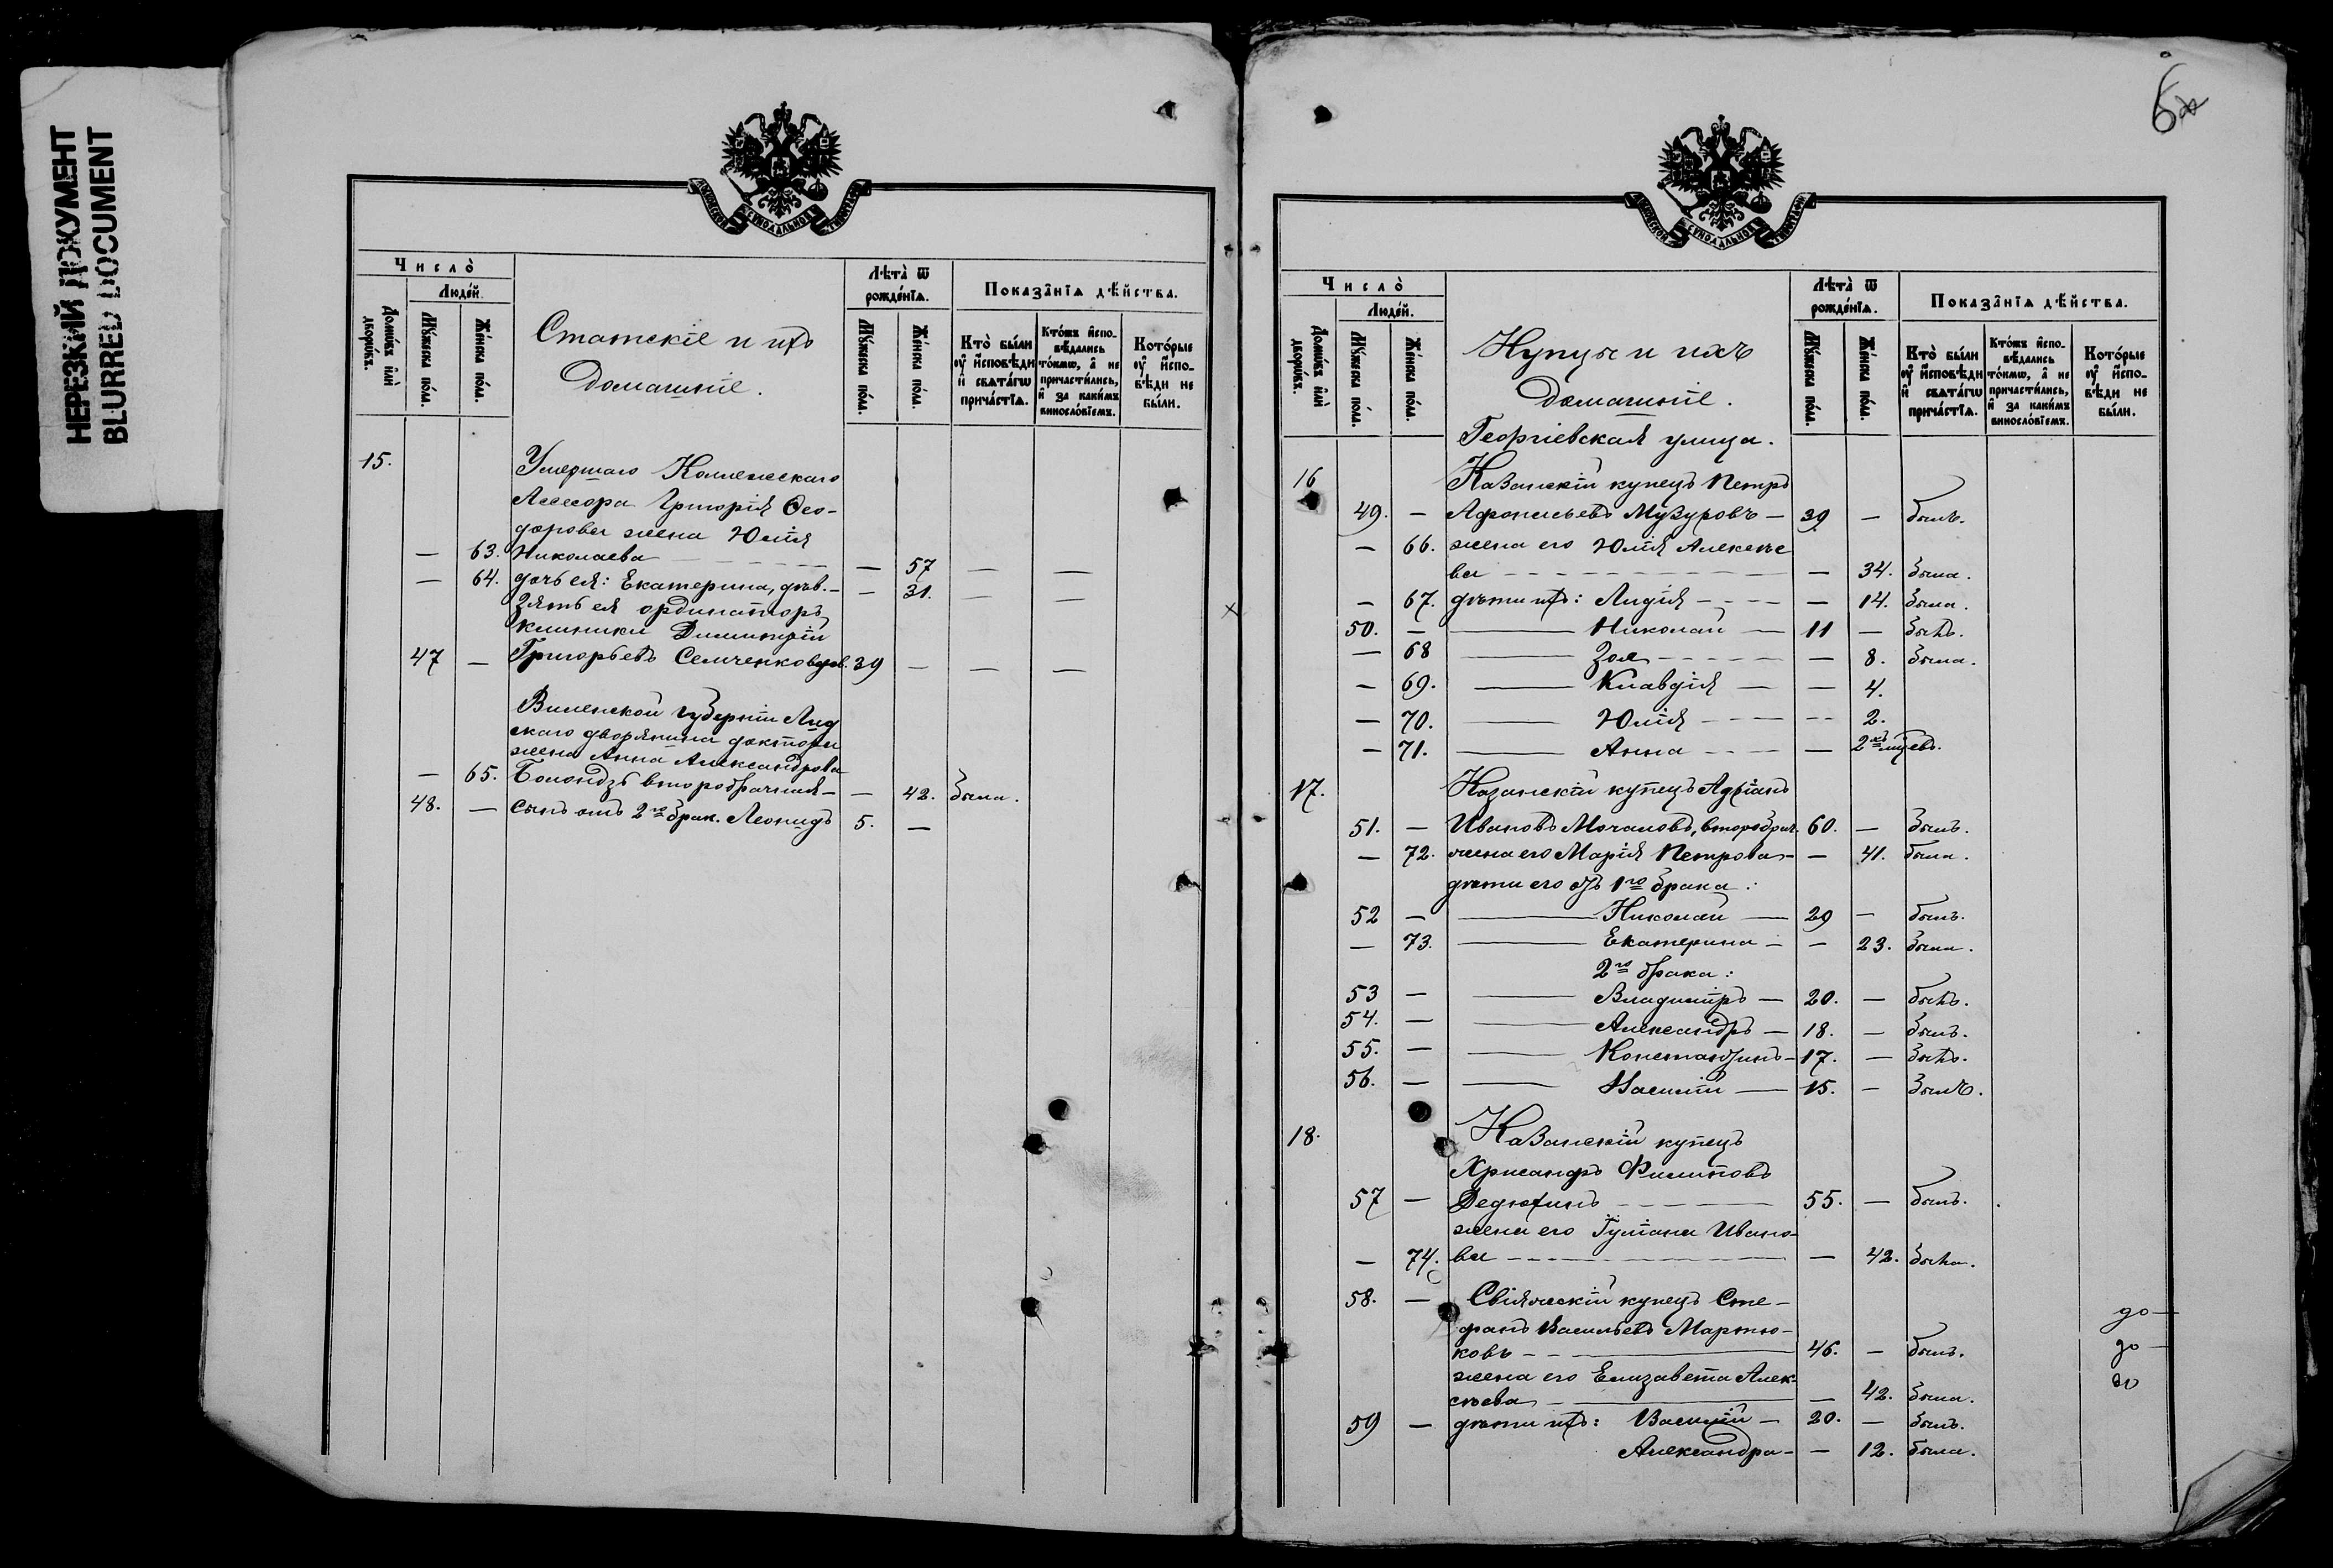 НЕРЕЗКИЙ ДОКУМЕНТ
BLURRED DOCUMENT
МОСКОВСКОЙ СУНОДАЛЬНОЙ ТИПОГРАФІИ
Число̀
Людéй.
Домѡ́въ и҆лѝ дворѡ́въ.
Мꙋ́жеска по́ла.
Же́нска по́ла.
Статскіе и ихъ
домашніе.
Лѣ́та ѿ рожде́нїѧ.
Мꙋ́жеска по́ла.
Же́нска по́ла.
Показа̂нїѧ дѣ́йства.
Кто̀ бы́ли оу҆ и҆сповѣ́ди и҆ свѧта́гѡ прича́стїѧ.
Кто́жъ и҆спо- вѣ́дались то́кмѡ, а҆ не причасти́лись, и҆ за каки́мъ винослѡ́вїемъ.
Кото́рые оу҆ и҆спо- вѣ́ди не бы́ли.
15. Умершаго Коллежскаго
Ассесора Григорія Ѳео-
дорова жена Юлія
— 63. Николаева — — 57 — —
— 64. дочь ея: Екатерина, дѣв. — — 31. — —
Зять ея ординаторъ
клиники Димитрій
47 — Григорьевъ Семченковъ 39 — — —
Виленской губерніи Лид
скаго дворянина доктора
жена Анна Александрова
— 65. второбрачная — — 42. была.
48. — Сынъ отъ 2го брак. Леонидъ 5. —
6
МОСКОВСКОЙ СУНОДАЛЬНОЙ ТИПОГРАФІИ
Число̀
Людéй.
Домѡ́въ и҆лѝ дворѡ́въ.
Мꙋ́жеска по́ла.
Же́нска по́ла.
Купцы и ихъ
домашніе.
Лѣ́та ѿ рожде́нїѧ.
Мꙋ́жеска по́ла.
Же́нска по́ла.
Показа̂нїѧ дѣ́йства.
Кто̀ бы́ли оу҆ и҆сповѣ́ди и҆ свѧта́гѡ прича́стїѧ.
Кто́жъ и҆спо- вѣ́дались то́кмѡ, а҆ не причасти́лись, и҆ за каки́мъ винослѡ́вїемъ.
Кото́рые оу҆ и҆спо- вѣ́ди не бы́ли.
Георгіевская улица.
16 Казанскій купецъ Петръ
49. — Афонасьевъ Музуровъ — 39 — былъ.
— 66. жена его Юлія Алексѣе
ва — — 34. была.
— 67. дѣти ихъ: Лидія — — 14. была.
50. — — Николай — 11 — былъ.
— 68 — Зоя — — 8. была.
— 69. — Клавдія — — 4.
— 70. — Юлія — — 2.
— 71. — Анна — — 2хъ мѣс.
17. Казанскій купецъ Адріанъ
51. — Ивановъ Мочаловъ, второбрач. 60. — былъ.
— 72. жена его Марія Петрова — — 41. была.
дѣти его отъ 1го брака:
52 — — Николай — 29 — былъ.
— 73. — Екатерина — — 23. была.
2го брака:
53 — — Владиміръ — 20. — былъ.
54. — — Александръ — 18. — былъ.
55. — — Константинъ — 17. — былъ.
56. — — Василій — 15. — былъ.
18. Казанскій купецъ
Хрисанфъ Филиповъ
57 — Дедюхинъ — 55. — былъ.
жена его Іуліана Ивано-
— 74. ва — — 42. была.
58. — Свіяжскій купецъ Сте-
фанъ Васильевъ Мартю-
ковъ — 46. — былъ.
жена его Елизавета Алек-
сѣева — — 42. была.
59 — дѣти ихъ: Василій — 20. — былъ.
Александра — — 12. была.
до —
до —
до